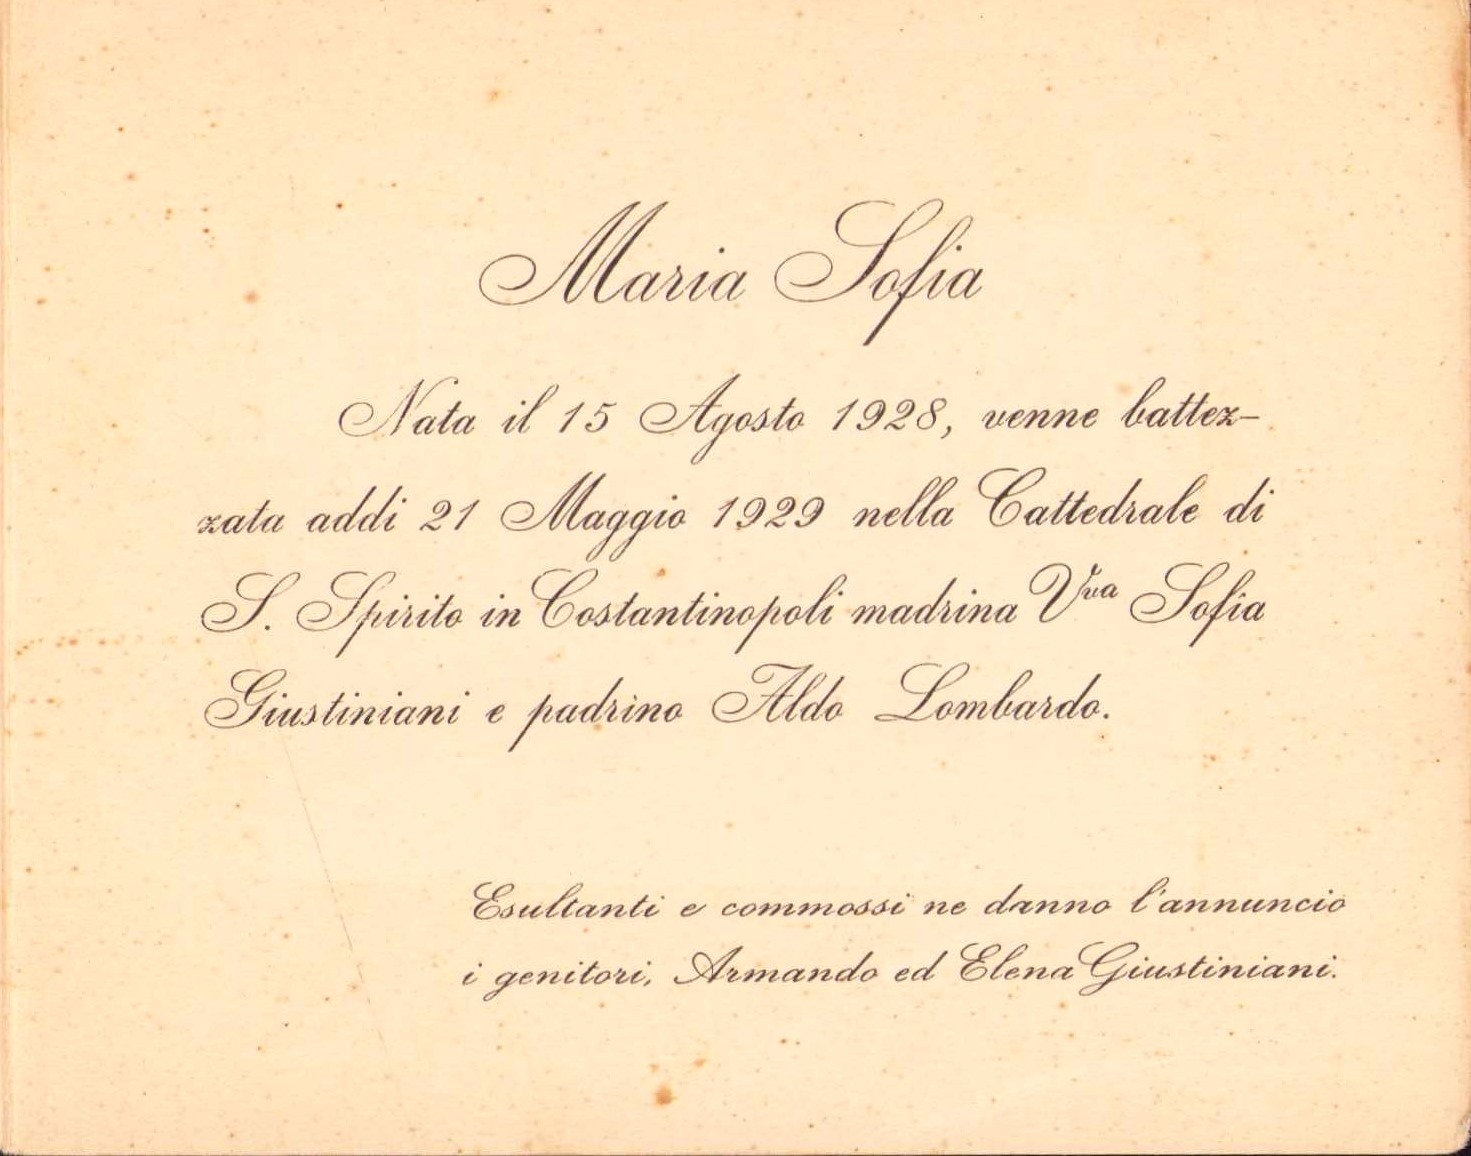 Maria Sofia
Nata il 15 Agosto 1928, venne battez-
zata addi 21 Maggio 1929 nella Cattedrale di
S. Spirito in Costantinopoli madrina Vva Sofia
Giustiniani e padrino Aldo Lombardo.
Esultanti e commossi ne danno l'annuncio
i genitori, Armando ed Elena Giustiniani.